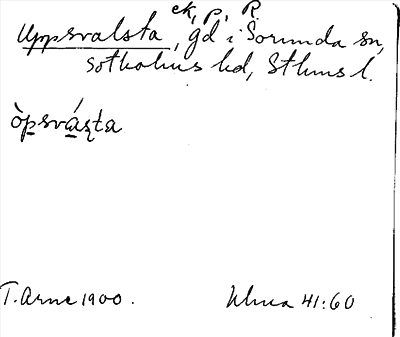 ck, p, R.
Uppsvalsta, gd i Sorunda sn,
Sotholms hd, Sthms l.
òpsvásta
T. Arne 1900.
Uhma 41:60